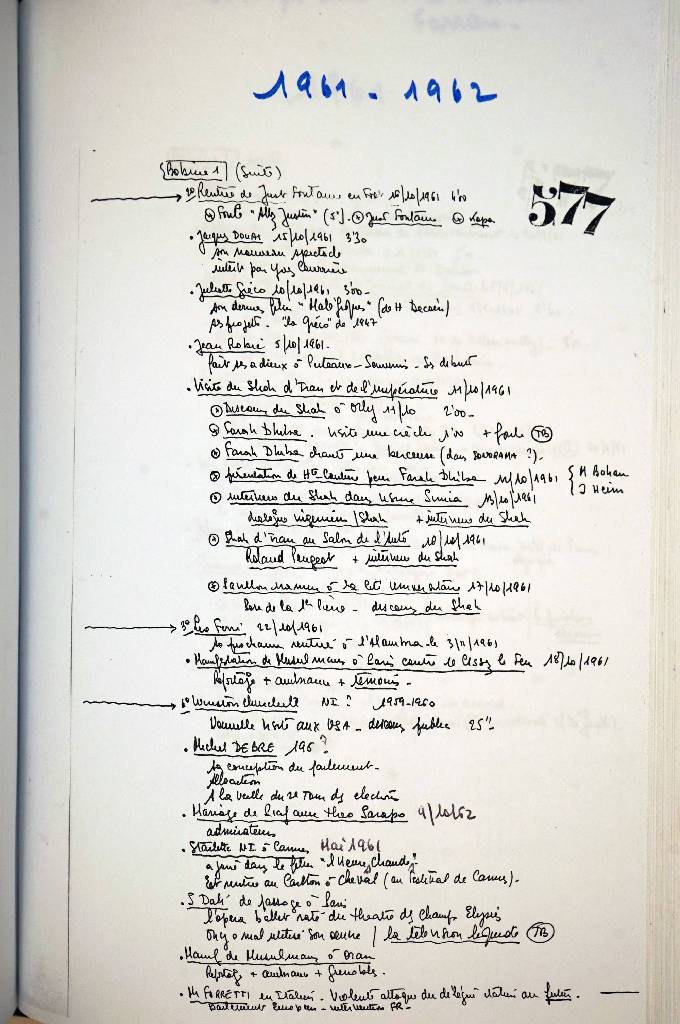 1961 - 1962
577
Bobine 1 (Suite)
2° Rentrée de Just Fontaine en Foot 18/10/1961 1'00
Foule "Allez Justin" (5"). Just Fontaine Kopa
. Jacques DOUAI 15/10/1961 3'30
son nouveau spectacle
interv par Yves Courrière
. Juliette Gréco 10/10/1961 3'00 -
son dernier film "Maléfiques" (de H Decoin)
ses projets - "la Gréco" de 1947
. Jean 5/10/1961 -
fait ses adieux à Puteaux - Souvenirs - Ses débuts
. Visite du Shah d'Iran et de l'impératrice 11/10/1961
① Discours du Shah à Orly 11/10 2'00 -
Farah Dhiba . Visite une crèche 1'00 + foule (TB)
Farah Dhiba chante une berceuse (dans SONORAMA ?) -
présentation de Hte Couture pour Farah Dhiba 11/10/1961 { M Bohan
J Heim
interview du Shah dans Usine Simca 13/10/1961
dialogue ingénieur / Shah + interview du Shah
Shah d'Iran au Salon de l'Auto 10/10/1961
Roland Peugeot + interview du Shah
Pavillon iranien à la Cité Universitaire 17/10/1961
Pose de la 1ère pierre - discours du Shah
3° Léo Ferré 22/10/1961
sa prochaine rentrée à l'Alhambra le 3/11/1961
. Manifestation de Musulmans à Paris contre le Cessez le Feu 18/10/1961
Reportage + ambiance + témoins -
Winston Churchill NI ? 1959-1960
Nouvelle visite aux USA - discours public 25"
. Michel DEBRE 196 ?
sa conception du parlement -
Allocution
A la veille du 2e Tour des élections
. Mariage de Piaf avec Theo Sarapo 9/10/62
admirateurs
. Starlette NI à Cannes Mai 1961
a joué dans le film "l'Heure Chaude"
Est rentrée au Carlton à Cheval (au Festival de Cannes) -
. S Dali de passage à Paris
l'opéra ballet raté du théatre des Champs Elysées
On y a mal utilisé son oeuvre / la télévision (TB)
. Manif de Musulmans à Oran
Reportage + ambiance + Grenades -
. Mr FORRETTI en Italien - Violente attaque du délégué italien au
Parlement Européen - intervention FR -